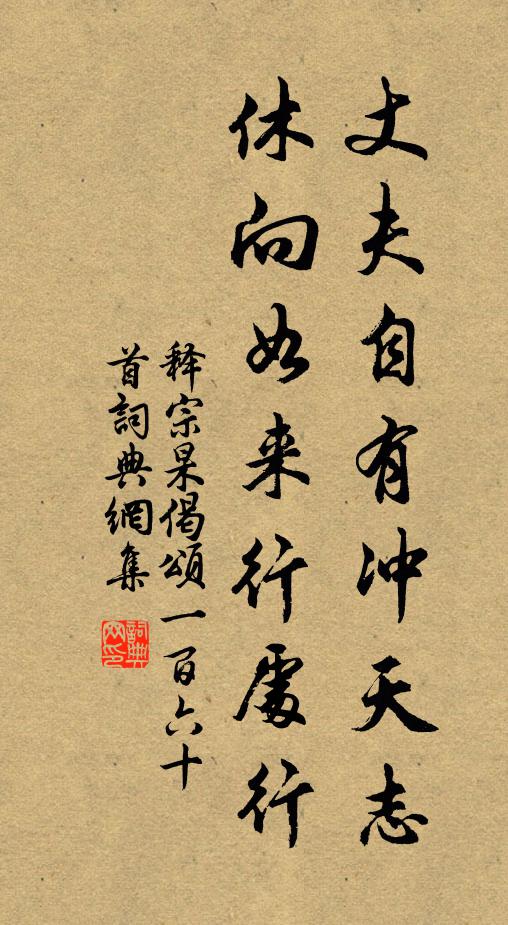 丈夫自有冲天志
休向如来行處行
釋宗杲偈頌一百六十
首詞典網集
詞典網印